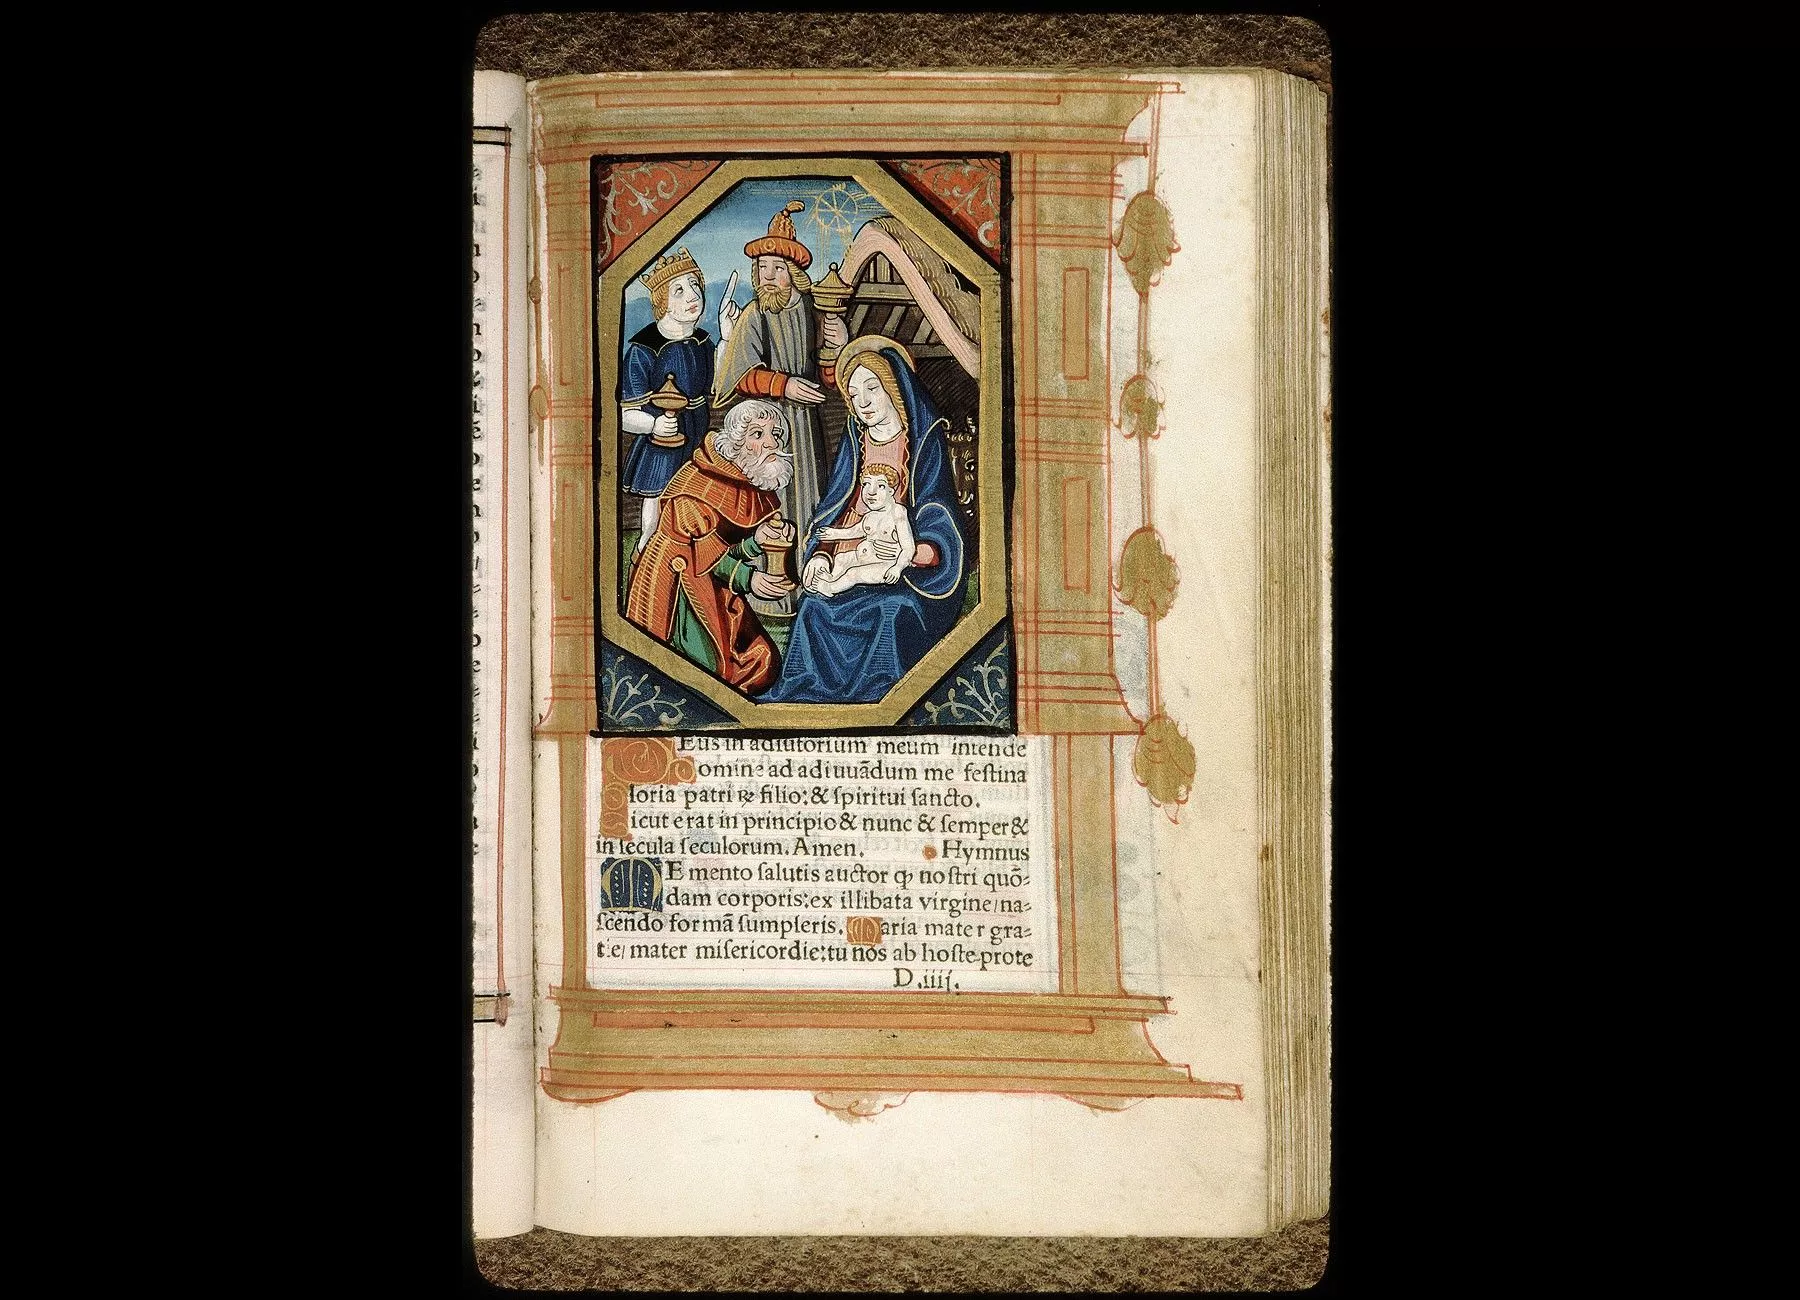 Eus in adiutorium meum intende
omine ad adiuuãdum me feſtina
loria patri & filio: & ſpiritui ſancto.
icut erat in principio & nunc & ſemper &
in ſecula ſeculorum. Amen. Hymnus
ME mento ſalutis auctor ꝙ noſtri quõ-
dam corporis: ex illibata virgine/na-
ſcẽdo formã ſumpſeris. Maria mater gra-
tie/ mater miſericordie: tu nos ab hoſte prote
D.iiij.